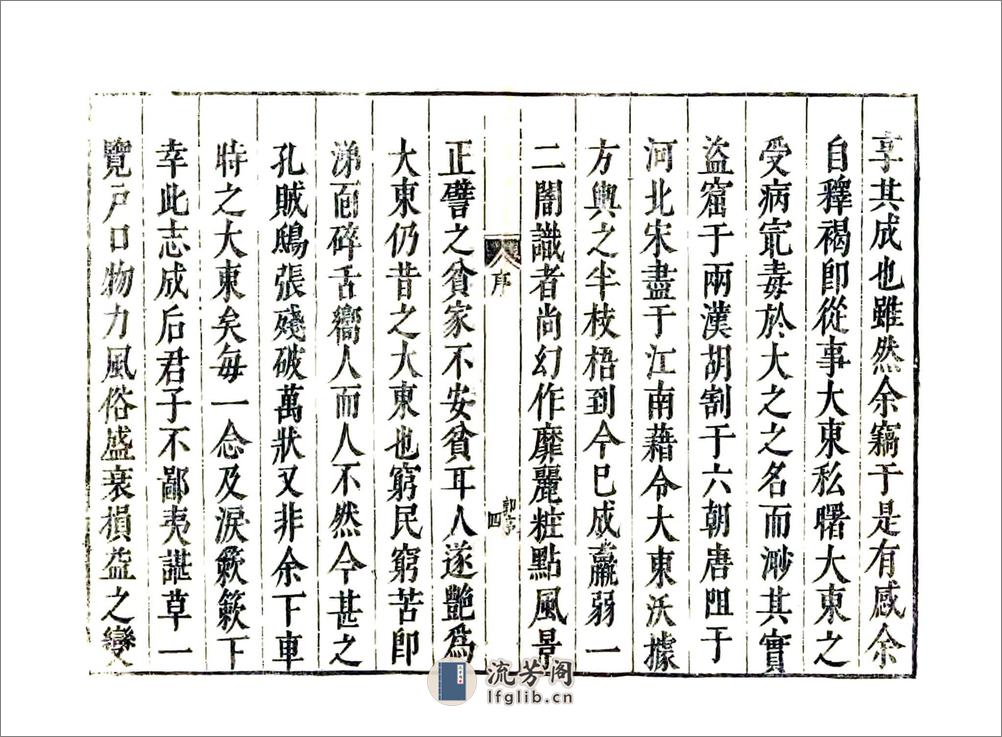 享其成也雖然余竊于是有感余
自釋褐即從事大東私曙大東之
受病寔毒於大之之名而渺其實
盜窟于兩漢胡割于六朝唐阻于
河北宋盡于江南藉令大東沃據
方輿之半枝梧到今已成羸弱一
二闇識者尚幻作靡麗粧點風景
序
郭序
四
正譬之貧家不安貧耳人遂艷爲
大東仍昔之大東也窮民窮苦即
涕面碎舌嚮人而人不然今甚之
孔賊鴟張殘破萬狀又非余下車
時之大東矣每一念及淚簌簌下
幸此志成后君子不鄙夷諶草一
覽戶口物力風俗盛衰損益之變
流芳阁
lfglib.cn